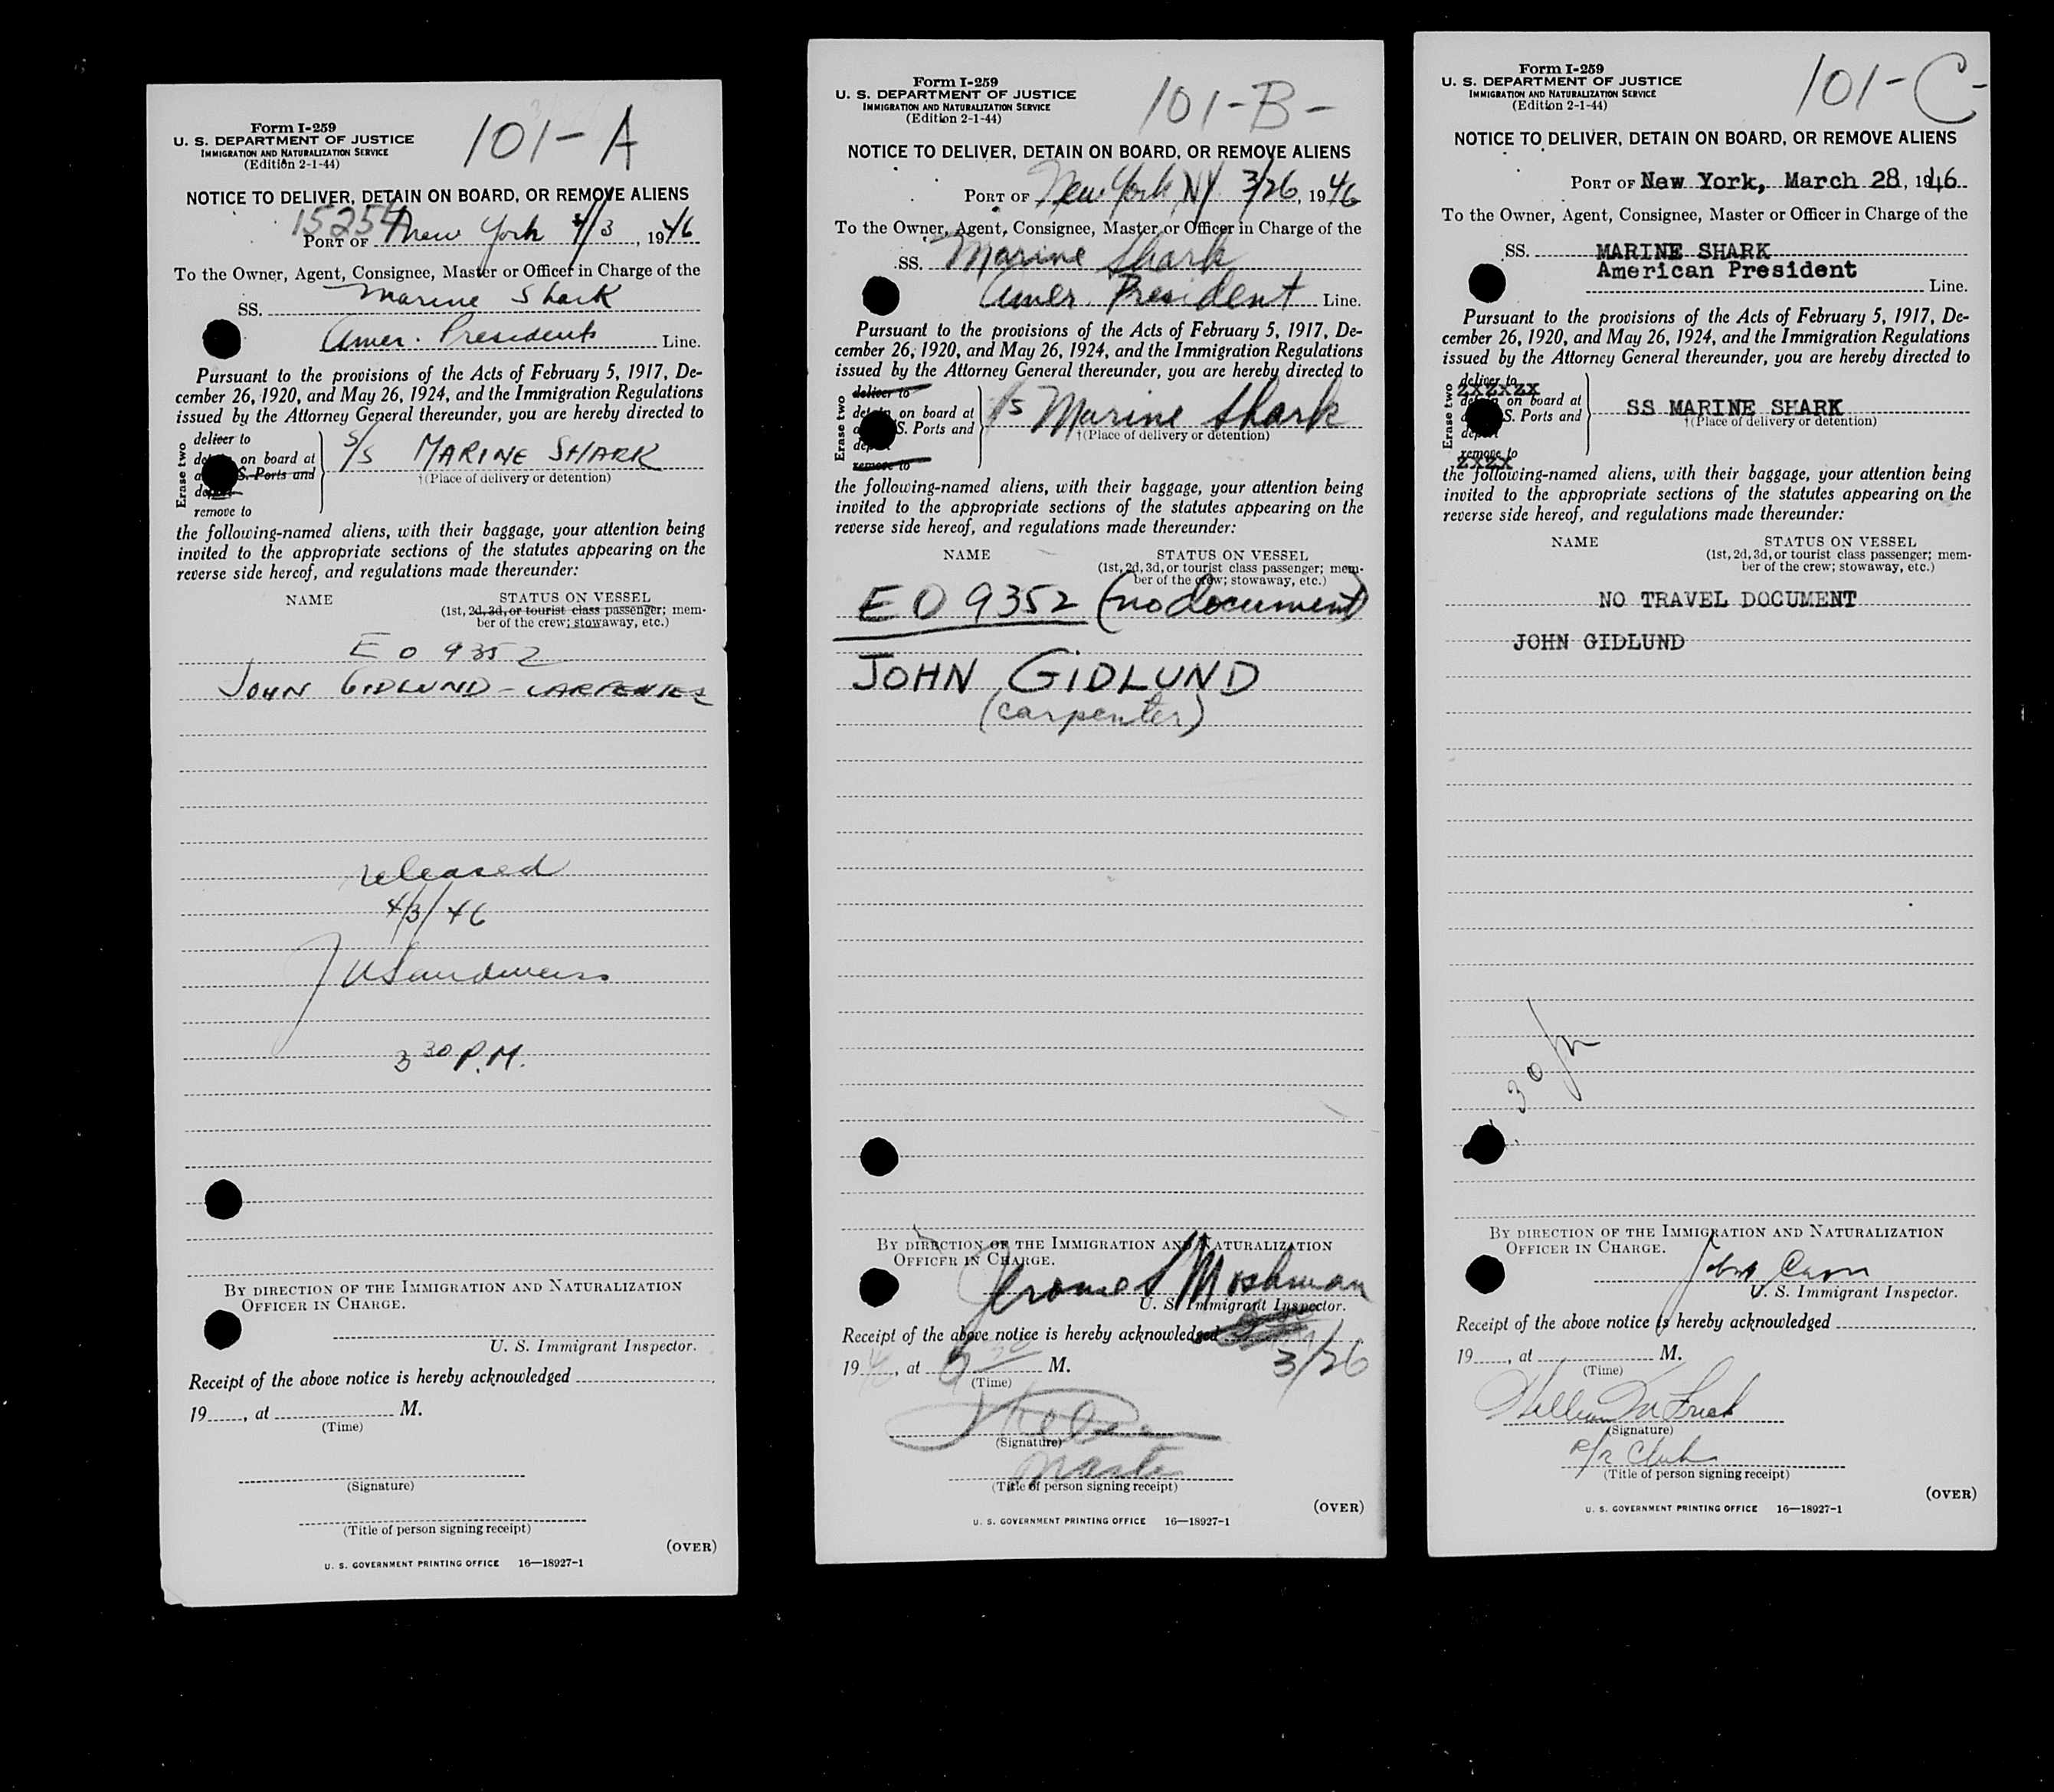 101-A
Form I-259
U. S. DEPARTMENT OF JUSTICE
IMMIGRATION AND NATURALIZATION SERVICE
(Edition 2-1-44)
NOTICE TO DELIVER, DETAIN ON BOARD, OR REMOVE ALIENS
15254
PORT OF New York 4/3, 1946
To the Owner, Agent, Consignee, Master or Officer in Charge of the
SS. Marine Shark
Amer. Presidents Line.
Pursuant to the provisions of the Acts of February 5, 1917, De-
cember 26, 1920, and May 26, 1924, and the Immigration Regulations
issued by the Attorney General thereunder, you are hereby directed to
Erase two
deliver to
on board at
S. Ports and
remove to
S/S MARINE SHARK
†(Place of delivery or detention)
the following-named aliens, with their baggage, your attention being
invited to the appropriate sections of the statutes appearing on the
reverse side hereof, and regulations made thereunder:
NAME STATUS ON VESSEL
(1st, 2d, 3d, or tourist class passenger; mem-
ber of the crew; stowaway, etc.)
E O 9352
JOHN GIDLUND - CARPENTER
released
4/3/46
3 30 P.M.
BY DIRECTION OF THE IMMIGRATION AND NATURALIZATION
OFFICER IN CHARGE.
U. S. Immigrant Inspector.
Receipt of the above notice is hereby acknowledged
19, at M.
(Time)
(Signature)
(Title of person signing receipt)
(OVER)
U. S. GOVERNMENT PRINTING OFFICE 16—18927-1
101-B-
Form I-259
U. S. DEPARTMENT OF JUSTICE
IMMIGRATION AND NATURALIZATION SERVICE
(Edition 2-1-44)
NOTICE TO DELIVER, DETAIN ON BOARD, OR REMOVE ALIENS
PORT OF New York NY 3/26, 1946
To the Owner, Agent, Consignee, Master or Officer in Charge of the
SS. Marine Shark
Amer. President Line.
Pursuant to the provisions of the Acts of February 5, 1917, De-
cember 26, 1920, and May 26, 1924, and the Immigration Regulations
issued by the Attorney General thereunder, you are hereby directed to
Erase two
deliver to
on board at
S. Ports and
remove to
S/S Marine Shark
†(Place of delivery or detention)
the following-named aliens, with their baggage, your attention being
invited to the appropriate sections of the statutes appearing on the
reverse side hereof, and regulations made thereunder:
NAME STATUS ON VESSEL
(1st, 2d, 3d, or tourist class passenger; mem-
ber of the crew; stowaway, etc.)
E O 9352 (no document)
JOHN GIDLUND
(carpenter)
BY DIRECTION OF THE IMMIGRATION AND NATURALIZATION
OFFICER IN CHARGE.
Jerome Moshman
U. S. Immigrant Inspector.
Receipt of the above notice is hereby acknowledged
3/26
1946, at M.
(Time)
(Signature)
(Title of person signing receipt)
(OVER)
U. S. GOVERNMENT PRINTING OFFICE 16—18927-1
101-C-
Form I-259
U. S. DEPARTMENT OF JUSTICE
IMMIGRATION AND NATURALIZATION SERVICE
(Edition 2-1-44)
NOTICE TO DELIVER, DETAIN ON BOARD, OR REMOVE ALIENS
PORT OF New York, March 28, 1946
To the Owner, Agent, Consignee, Master or Officer in Charge of the
SS. MARINE SHARK
American President
Line.
Pursuant to the provisions of the Acts of February 5, 1917, De-
cember 26, 1920, and May 26, 1924, and the Immigration Regulations
issued by the Attorney General thereunder, you are hereby directed to
Erase two
deliver to
on board at
S. Ports and
remove to
SS MARINE SHARK
†(Place of delivery or detention)
the following-named aliens, with their baggage, your attention being
invited to the appropriate sections of the statutes appearing on the
reverse side hereof, and regulations made thereunder:
NAME STATUS ON VESSEL
(1st, 2d, 3d, or tourist class passenger; mem-
ber of the crew; stowaway, etc.)
NO TRAVEL DOCUMENT
JOHN GIDLUND
BY DIRECTION OF THE IMMIGRATION AND NATURALIZATION
OFFICER IN CHARGE.
U. S. Immigrant Inspector.
Receipt of the above notice is hereby acknowledged
19, at M.
(Time)
(Signature)
(Title of person signing receipt)
(OVER)
U. S. GOVERNMENT PRINTING OFFICE 16—18927-1